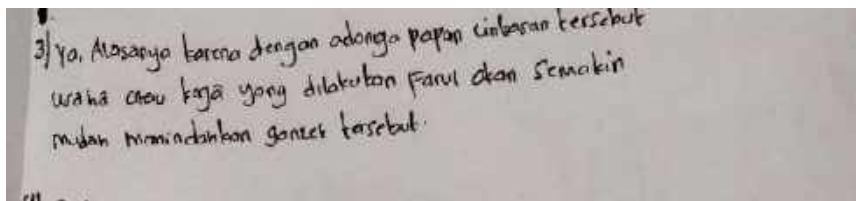 3) Ya. Alasanya karena dengan adanya papan cimbaran tersebut
usaha atau kerja yang dilakukan Farul akan semakin
mudah memindahkan ganset tersebut.